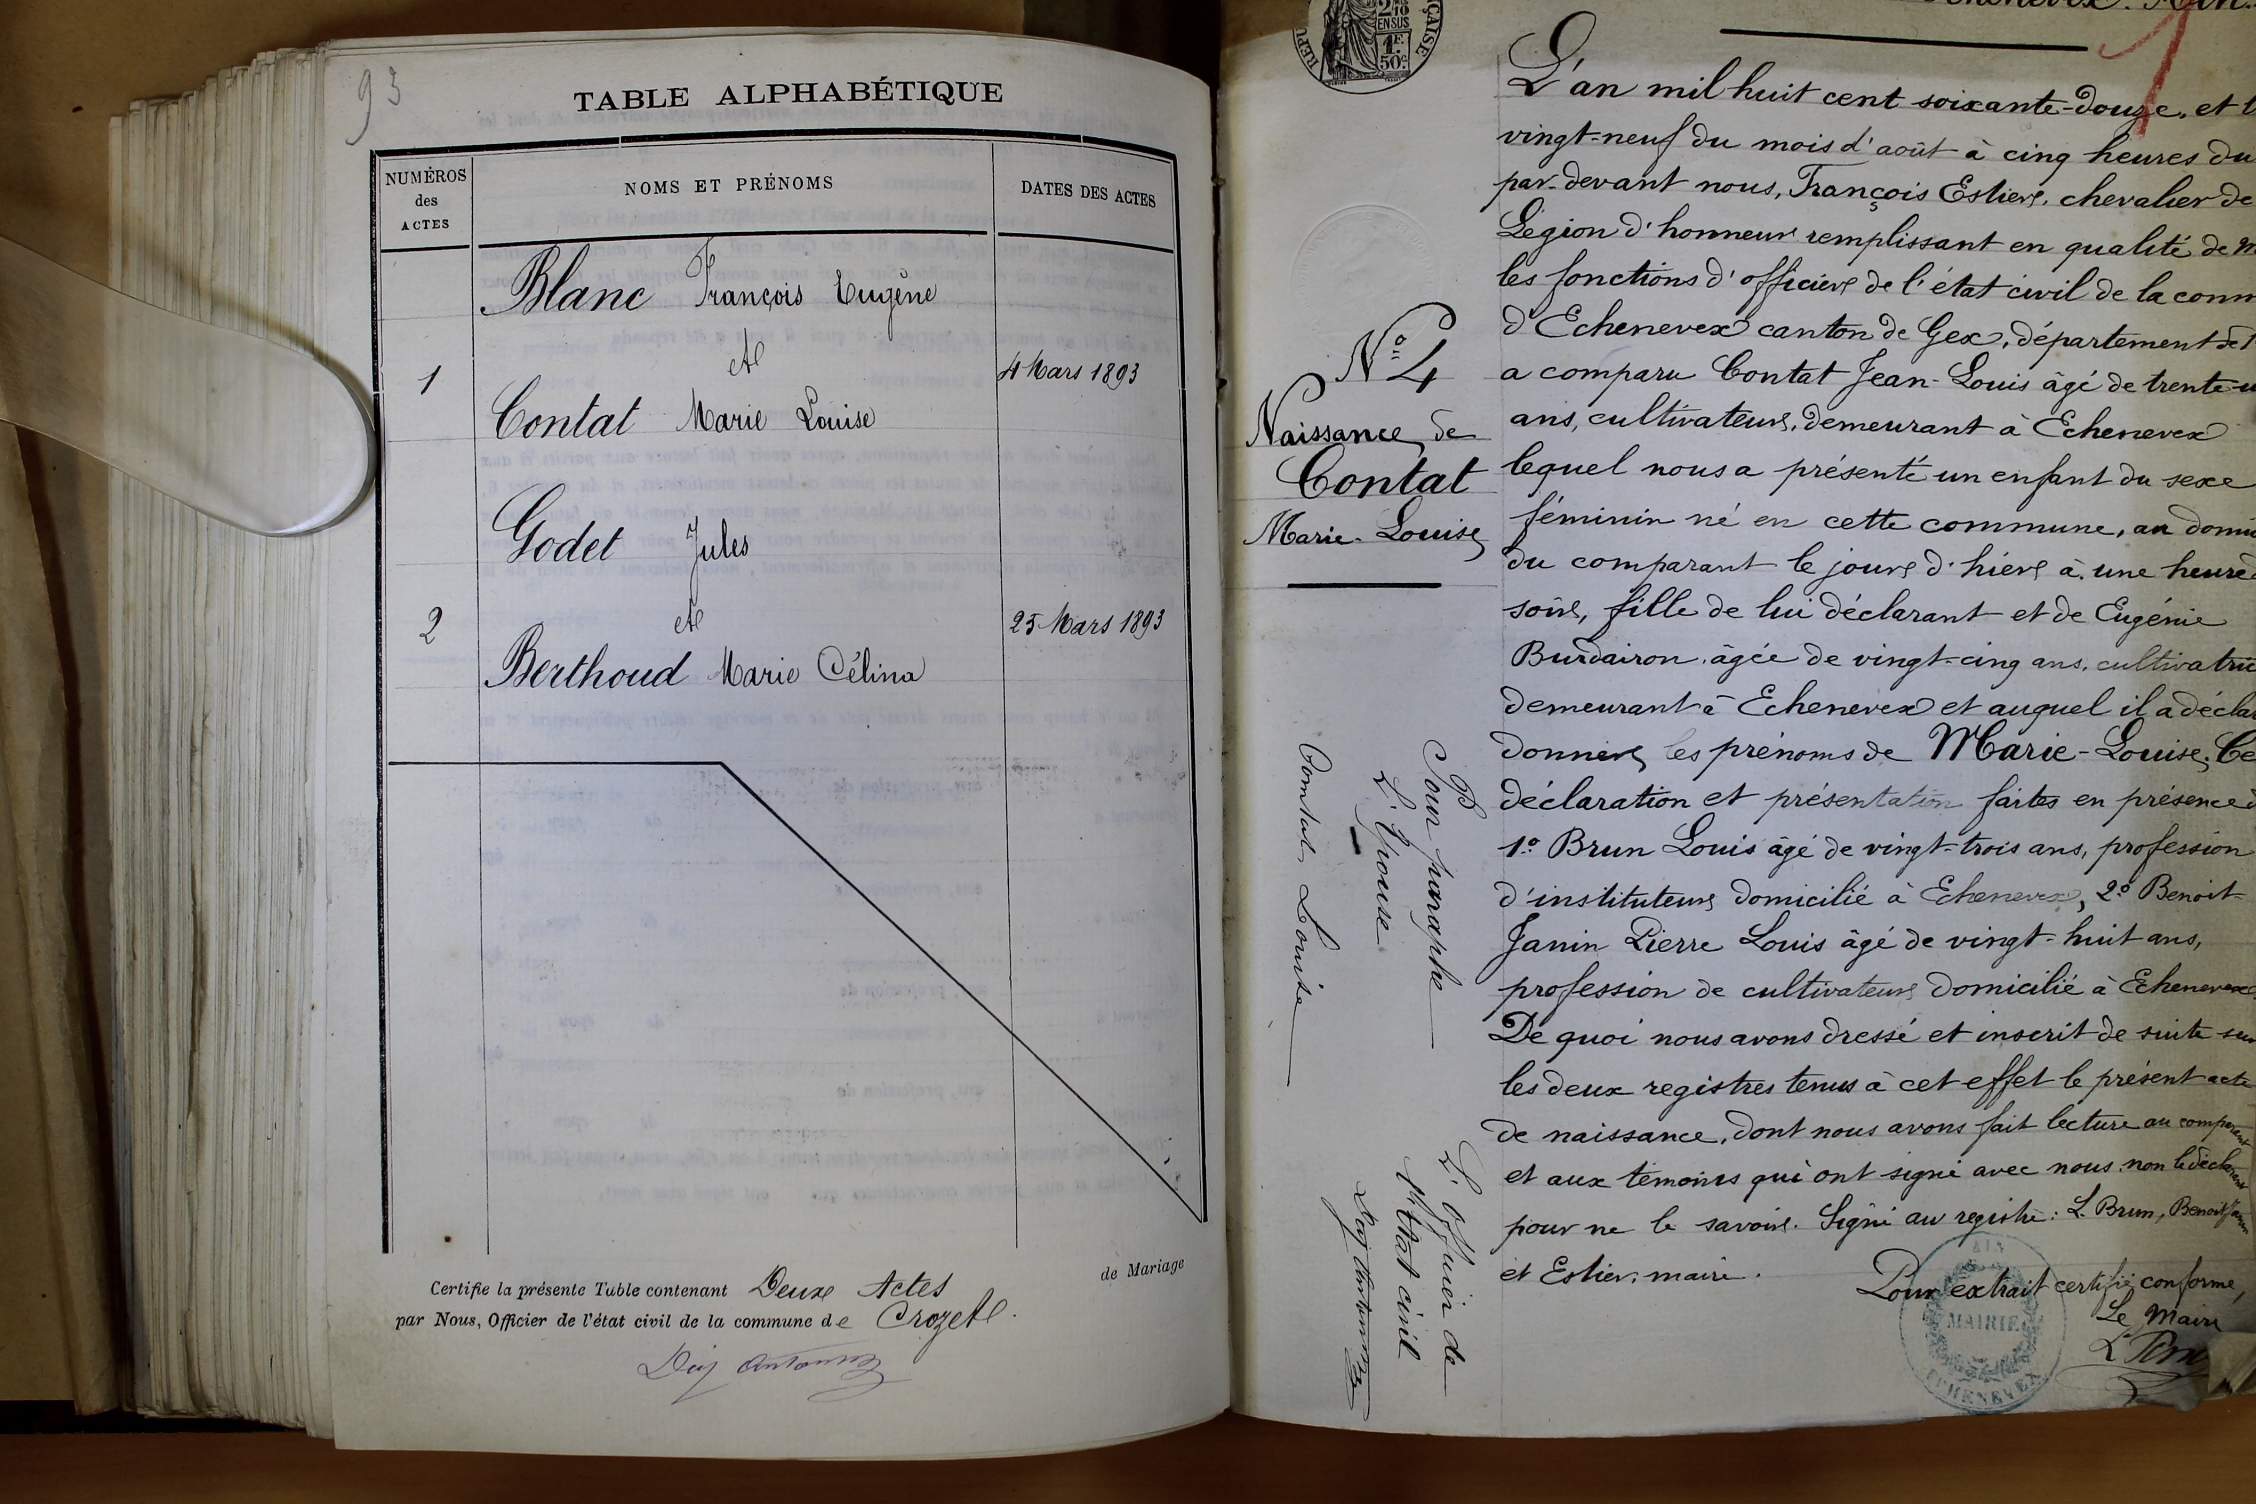 93
TABLE ALPHABÉTIQUE
NUMÉROS
des
ACTES
NOMS ET PRÉNOMS
DATES DES ACTES
Blanc François Eugène
et
1
4 Mars 1893
Contat Marie Louise
Godet Jules
et
2
25 Mars 1893
Berthoud Marie Célina
de Mariage
Certifie la présente Table contenant Deux Actes
par Nous, Officier de l'état civil de la commune de Crozet.
2/10
EN SUS
1F.
50c
N° 4
Naissance de
Contat
Marie-Louise
Pour paraphe
L'Épouse
Contat Louise
L'officier de
l'état civil
L'an mil huit cent soixante-douze, et l
vingt-neuf du mois d'août à cinq heures du
par-devant nous, François Estier, chevalier de
Légion d'honneur remplissant en qualité de m
les fonctions d'officier de l'état civil de la comm
d'Echenevex canton de Gex, département de l
a comparu Contat Jean-Louis âgé de trente-u
ans, cultivateur, demeurant à Echenevex
lequel nous a présenté un enfant du sexe
féminin né en cette commune, au domi
du comparant le jour d'hier à une heure d
soir, fille de lui déclarant et de Eugénie
Burdairon, âgée de vingt-cinq ans, cultivatric
demeurant à Echenevex et auquel il a déclar
donner les prénoms de Marie-Louise. Ce
déclaration et présentation faites en présence d
1° Brun Louis âgé de vingt-trois ans, profession
d'instituteur domicilié à Echenevex, 2° Benoit-
Janin Pierre Louis âgé de vingt-huit ans,
profession de cultivateur domicilié à Echenevex.
De quoi nous avons dressé et inscrit de suite sur
les deux registres tenus à cet effet le présent acte
de naissance, dont nous avons fait lecture au comparant
et aux témoins qui ont signé avec nous non le déclarant
pour ne le savoir. Signé au registre: L. Brun, Benoit-Janin
et Estier, maire.
Pour extrait certifié conforme,
Le Maire
AIN
MAIRIE
ECHENEVEX